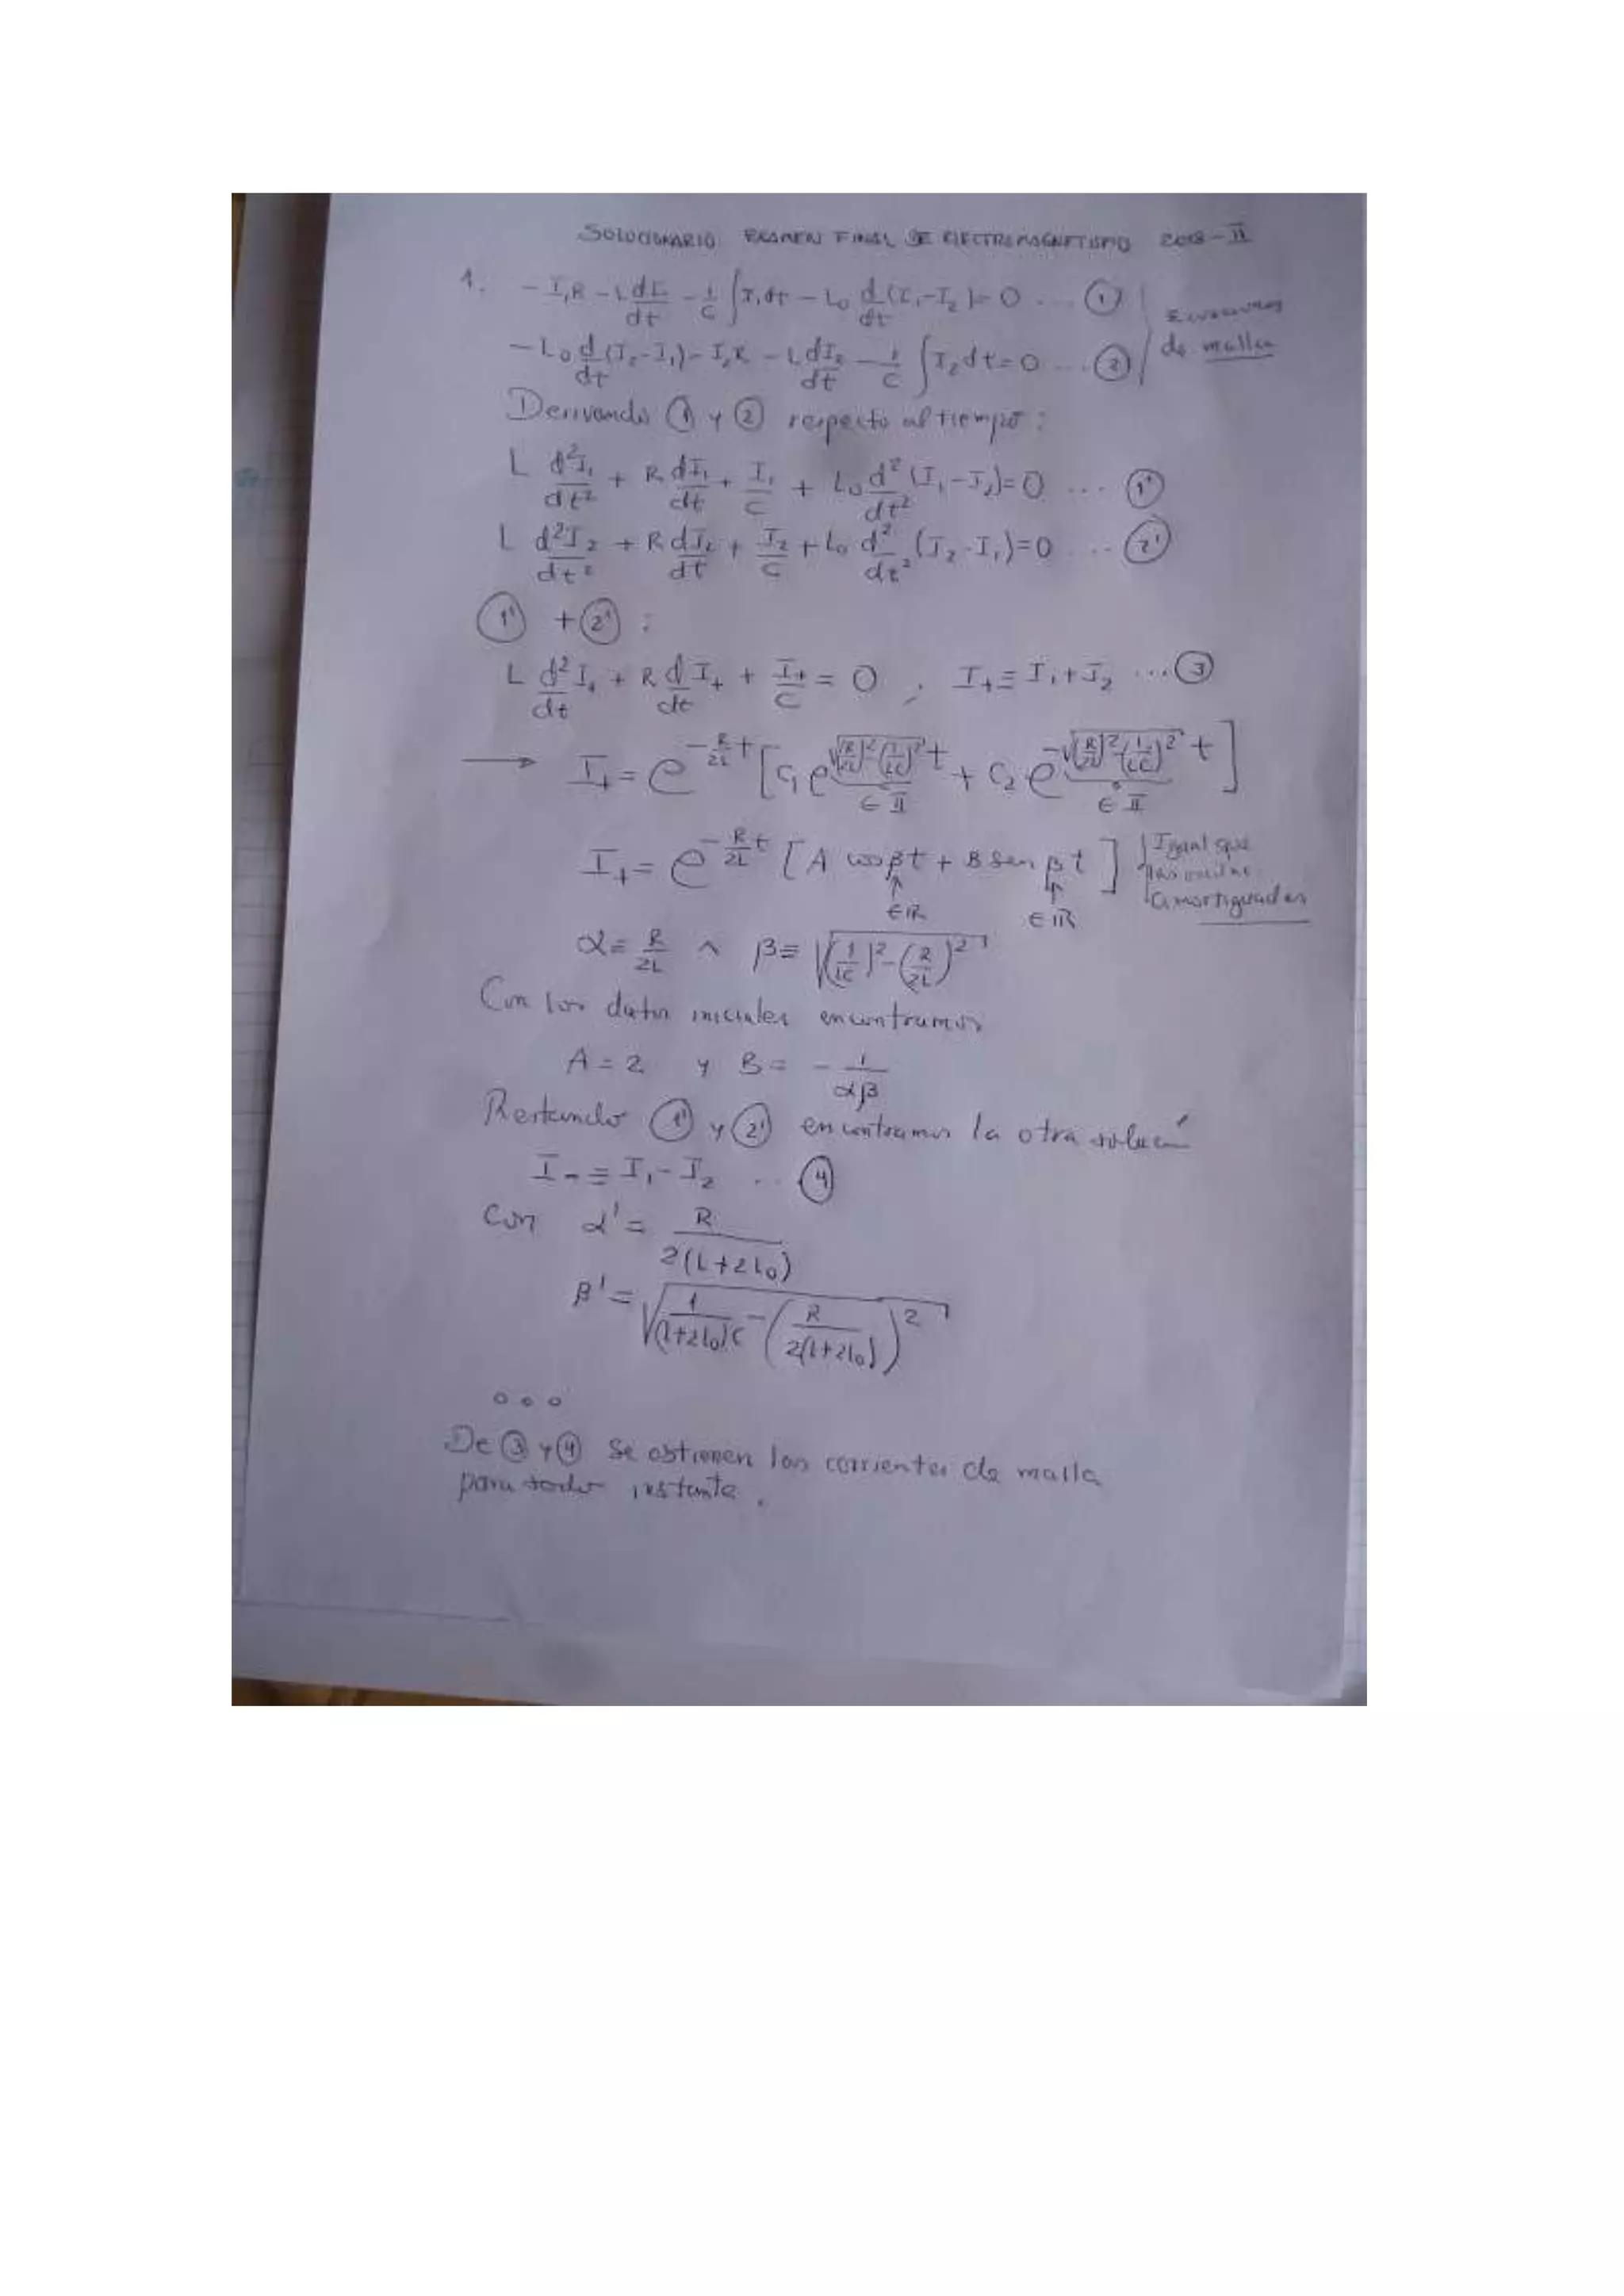 SOLUCIONARIO EXAMEN FINAL DE ELECTROMAGNETISMO 2018-II
1. - I₁R - L dI₁/dt - 1/C ∫I₁dt - L₀ d/dt (I₁-I₂) = 0 ... ①
- L₀ d/dt (I₂-I₁) - I₂R - L dI₂/dt - 1/C ∫I₂dt = 0 ... ②
Ecuaciones
de mallas
Derivando ① y ② respecto al tiempo:
L d²I₁/dt² + R dI₁/dt + I₁/C + L₀ d²/dt² (I₁-I₂) = 0 ... ①'
L d²I₂/dt² + R dI₂/dt + I₂/C + L₀ d²/dt² (I₂-I₁) = 0 ... ②'
①' + ②' :
L d²/dt I₊ + R d/dt I₊ + I₊/C = 0 , I₊ ≡ I₁+I₂ ... ③
→ I₊ = e^(-R/2L t) [ C₁ e^(√((R/2L)²-(1/LC)²) t) + C₂ e^(-√((R/2L)²-(1/LC)²) t) ]
∈ II ∈ II
I₊ = e^(-R/2L t) [ A cos βt + B sen βt ]
∈ℝ ∈ℝ
Igual que
las
amortiguadas
α ≡ R/2L ∧ β ≡ √((1/LC)² - (R/2L)²)
Con los datos iniciales encontramos
A = 2 y B = - 1/αβ
Restando ①' y ②' encontramos la otra solución
I₋ ≡ I₁ - I₂ ... ④
Con α' = R/2(L+2L₀)
β' = √(1/(L+2L₀)C - (R/2(L+2L₀))²)
∘∘∘
De ③ y ④ se obtienen las corrientes de malla
para todo instante.